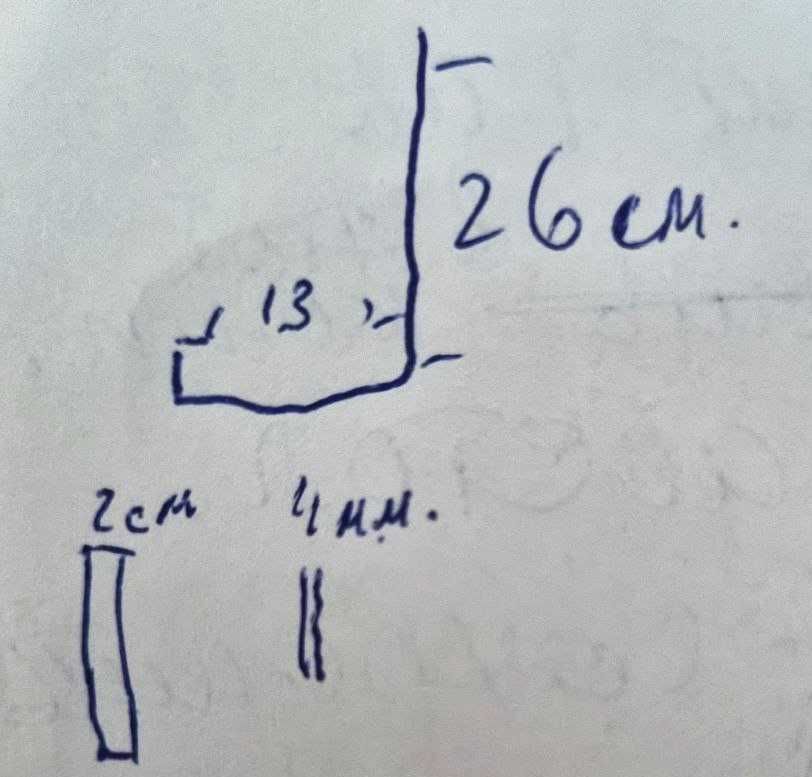 26 см.
13
2 см 4 мм.